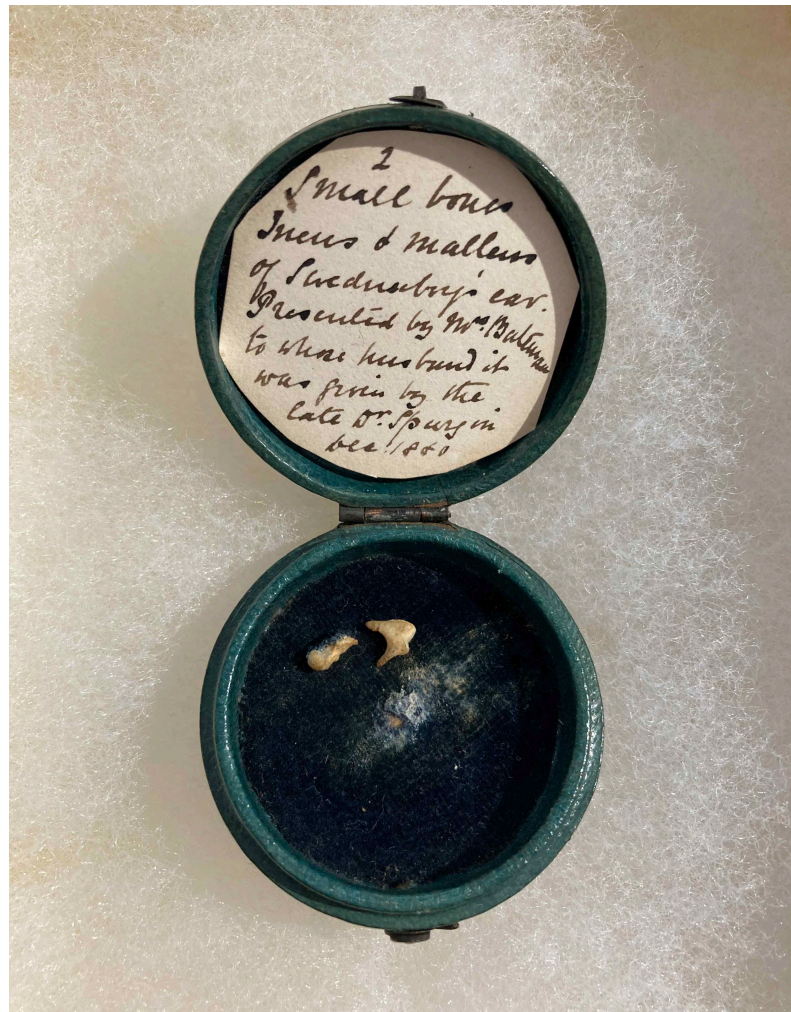 2
Small bones
Incus & Malleus
of Swedenborg's ear.
Presented by Mrs. Bateman
to whose husband it
was given by the
late Dr. Spurgin
Dec 1880